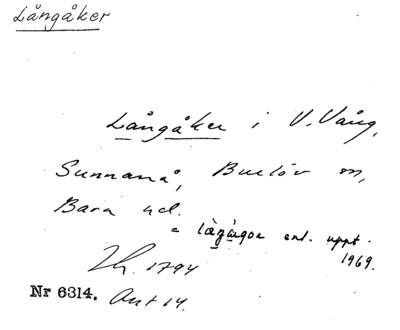 Långåker
Långåker i V. Vång,
Sunnanå, Burlöv sn,
Bara hd.
= enl. uppt.
1969.
1794
Nr 6314. Ant 14.